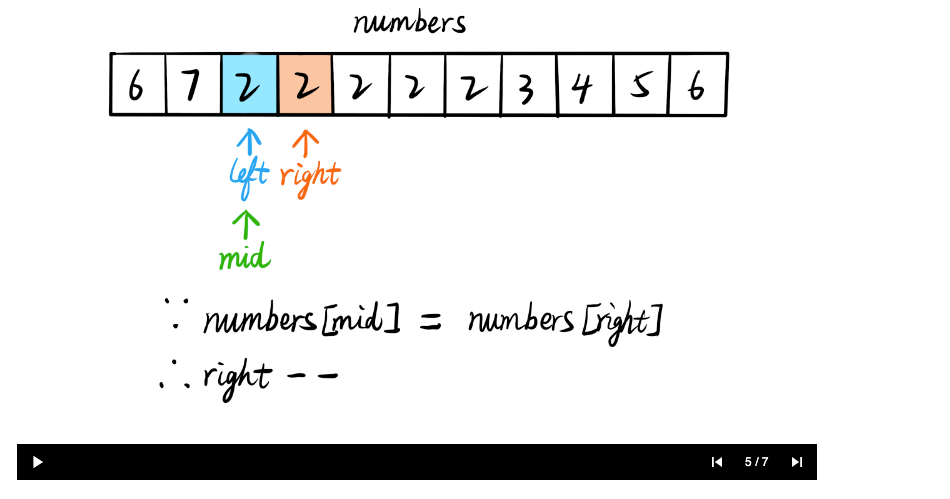 numbers
6 7 2 2 2 2 2 3 4 5 6
left right
mid
∵ numbers[mid] = numbers[right]
∴ right --
5 / 7